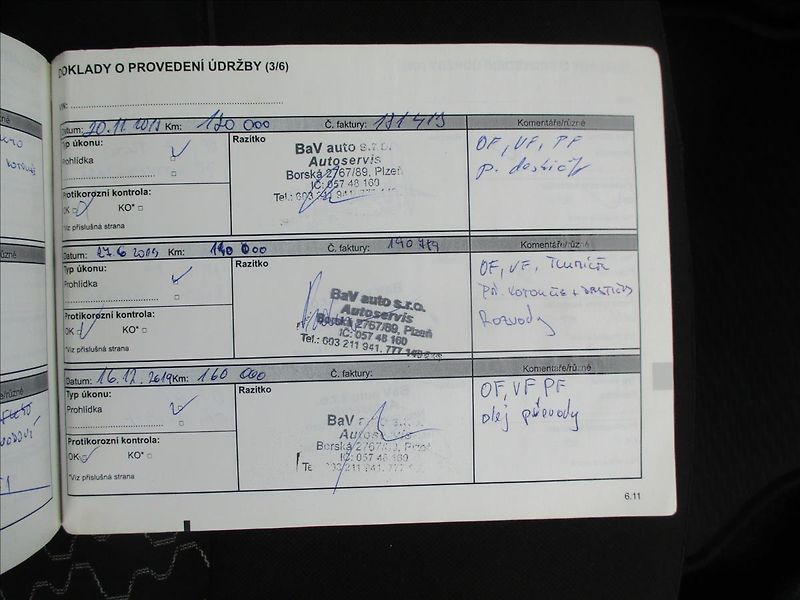 DOKLADY O PROVEDENÍ ÚDRŽBY (3/6)
VIN:
Datum: 20.11 Km: 120 000 Č. faktury: Komentáře/různé
Typ úkonu:
Prohlídka
Protikorozní kontrola:
OK KO*
*Viz příslušná strana
Razítko
BaV auto s.r.o.
Autoservis
Borská 2767/89, Plzeň
IČ: 057 48 160
Tel.: 603 211 941, 777
OF, VF, PF
p. destičk
Datum: 27.6 2019 Km: 140 000 Č. faktury: Komentáře/různé
Typ úkonu:
Prohlídka
Protikorozní kontrola:
OK KO*
*Viz příslušná strana
Razítko
BaV auto s.r.o.
Autoservis
Borská 2767/89, Plzeň
IČ: 057 48 160
Tel.: 603 211 941, 777
OF, VF,
PŘ. KOTOUČE + DESTIČKY
Rozvody
Datum: 16.12.2019 Km: 160 000 Č. faktury: Komentáře/různé
Typ úkonu:
Prohlídka
Protikorozní kontrola:
OK KO*
*Viz příslušná strana
Razítko
BaV auto s.r.o.
Autoservis
Borská 2767/89, Plzeň
IČ: 057 48 160
211 941, 777
OF, VF PF
olej převody
6.11